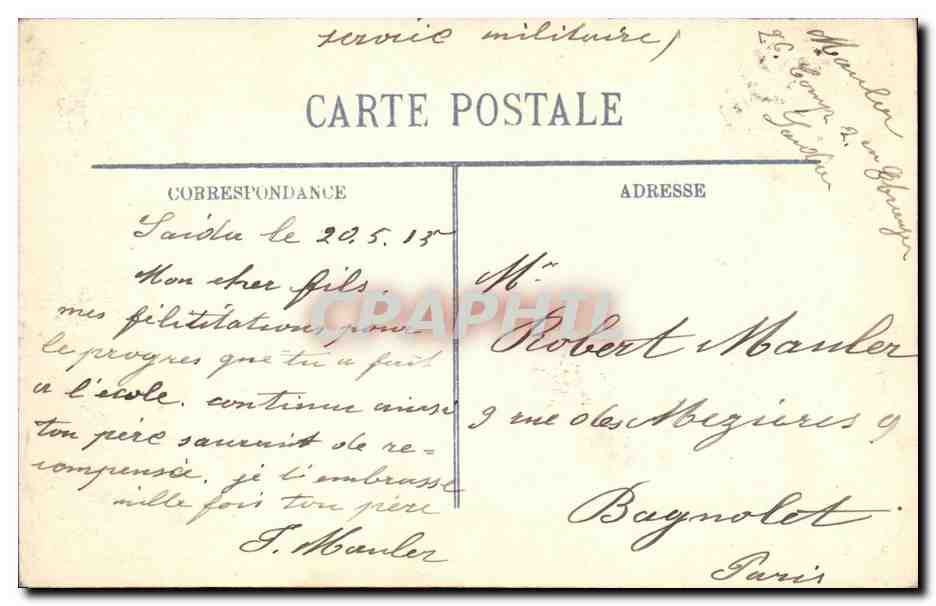 service militaire)
Mauler
2 E. Comp 2. en
Saida
CARTE POSTALE
CORRESPONDANCE
Saida le 20.5.15
Mon cher fils.
mes félititations pour
le progres que tu a fait
a l'école. continu ainsi
ton père saurait de re=
compensée. je t'embrasse
mille fois ton père
F. Mauler
ADRESSE
Mr
Robert Mauler
9 rue des Mezières 9
Bagnolet
Paris
CPAPHIL